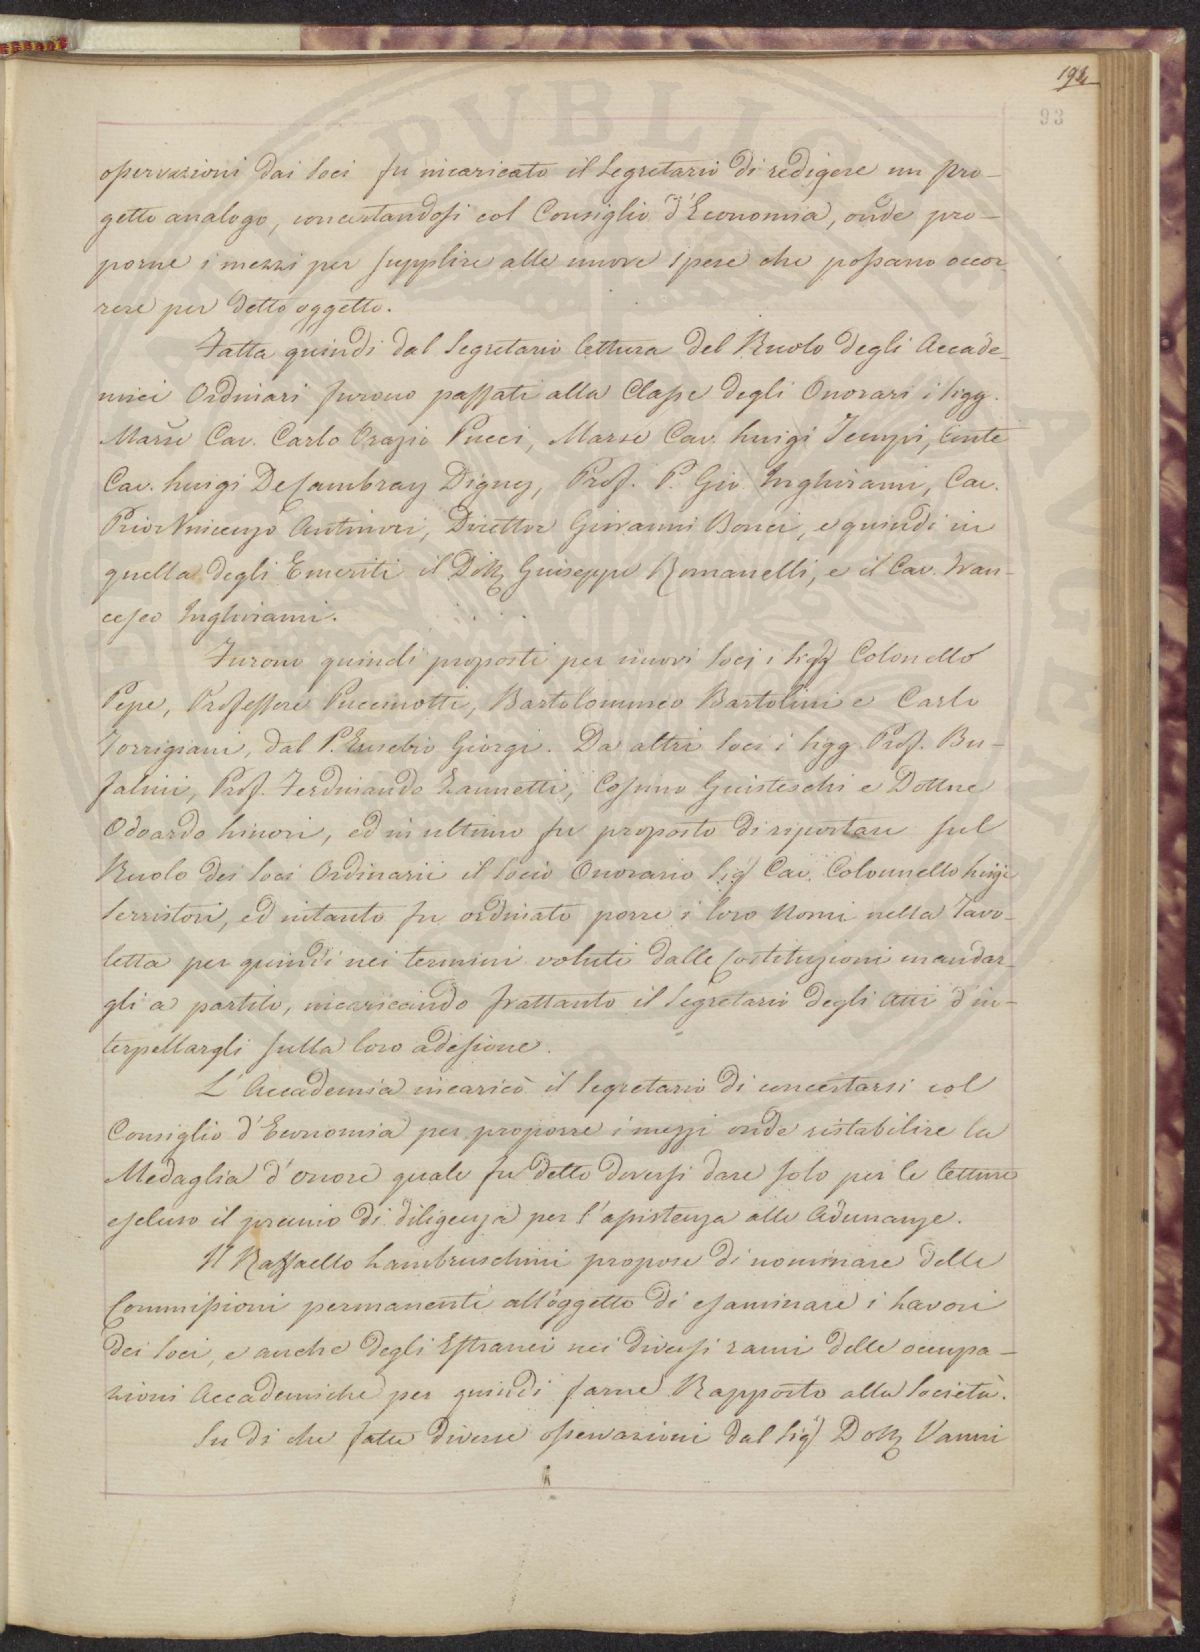 194
93
osservazioni dai Soci fu incaricato il Segretario di redigere un pro-
getto analogo, concertandosi col Consiglio d'Economia, onde pro-
porne i mezzi per supplire alle nuove spese che possano occor-
rere per detto oggetto.
Fatta quindi dal Segretario lettura del Ruolo degli Accade-
mici Ordinari furono passati alla Classe degli Onorari i Sigg.
Marse Cav. Carlo Orazio Pucci, Marse Cav. Luigi Tempi, Conte
Cav. Luigi De Cambray Digny, Prof. P. Gio. Inghirami, Cav.
Prior Vincenzo Antinori, Direttor Giovanni Bonci, e quindi in
quella degli Emeriti il Dott. Giuseppe Romanelli, e il Cav. Fran-
cesco Inghirami.
Furono quindi proposti per nuovi Soci i Sigg Colonello
Pepe, Professore Puccinotti, Bartolommeo Bartolini e Carlo
Torrigiani, dal P. Eusebio Giorgi. Da altri Soci i Sigg. Prof. Bu-
falini, Prof. Ferdinando Zannetti, Cosimo Giusteschi e Dottore
Odoardo Linori, ed in ultimo fu proposto di riportare sul
Ruolo dei Soci Ordinarii il Socio Onorario Sig Cav. Colonnello Luigi
Serristori, ed intanto fu ordinato porre i loro Nomi nella Tavo-
letta per quindi nei termini voluti dalle Costituzioni mandar-
gli a partito, incaricando frattanto il Segretario degli Atti d'in-
terpellargli sulla loro adesione.
L'Accademia incaricò il Segretario di concertarsi col
Consiglio d'Economia per proporre i mezzi onde ristabilire la
Medaglia d'onore quale fu detto doversi dare solo per le letture
escluso il premio di diligenza per l'assistenza alle Adunanze.
Il Raffaello Lambruschini propose di nominare delle
Commissioni permanenti all'oggetto di esaminare i Lavori
dei Soci, e anche degli Estranei nei diversi rami delle occupa-
zioni Accademiche per quindi farne Rapporto alla Società.
Su di che fatte diverse osservazioni dal Sig Dott. Vanni